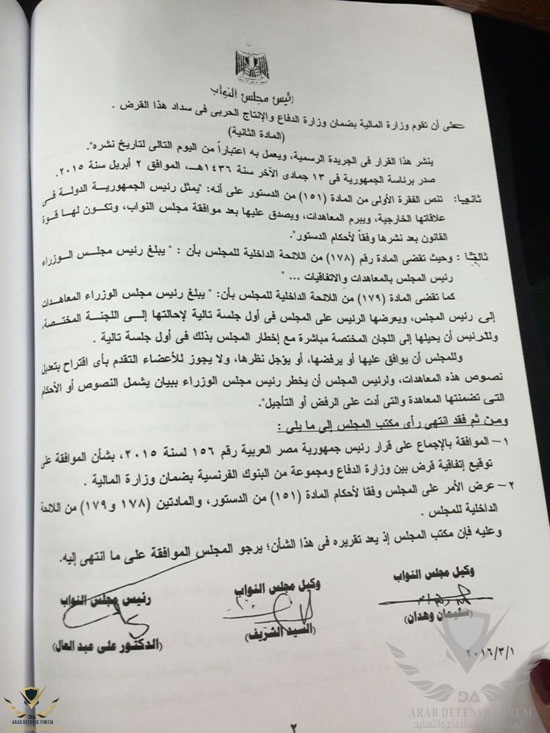 رئيس مجلس النواب
على أن تقوم وزارة المالية بضمان وزارة الدفاع والإنتاج الحربى فى سداد هذا القرض .
(المادة الثانية)
ينشر هذا القرار فى الجريدة الرسمية، ويعمل به اعتباراً من اليوم التالى لتاريخ نشره".
صدر برئاسة الجمهورية فى ١٣ جمادى الآخر سنة ١٤٣٦هـ، الموافق ٢ أبريل سنة ٢٠١٥.
ثانيا: تنص الفقرة الأولى من المادة (١٥١) من الدستور على أنه: "يمثل رئيس الجمهورية الدولة فى
علاقاتها الخارجية، ويبرم المعاهدات، ويصدق عليها بعد موافقة مجلس النواب، وتكون لها قوة
القانون بعد نشرها وفقاً لأحكام الدستور".
ثالثا : وحيث تقضى المادة رقم (١٧٨) من اللائحة الداخلية للمجلس بأن : " يبلغ رئيس مجلس الوزراء
رئيس المجلس بالمعاهدات والاتفاقيات ... "
كما تقضى المادة (١٧٩) من اللائحة الداخلية للمجلس بأن: "يبلغ رئيس مجلس الوزراء المعاهدات
إلى رئيس المجلس، ويعرضها الرئيس على المجلس فى أول جلسة تالية لإحالتها إلى اللجنة المختصة،
وللرئيس أن يحيلها إلى اللجان المختصة مباشرة مع إخطار المجلس بذلك فى أول جلسة تالية .
وللمجلس أن يوافق عليها أو يرفضها، أو يؤجل نظرها، ولا يجوز للأعضاء التقدم بأى اقتراح بتعديل
نصوص هذه المعاهدات، ولرئيس المجلس أن يخطر رئيس مجلس الوزراء ببيان يشمل النصوص أو الأحكام
التى تضمنتها المعاهدة والتى أدت على الرفض أو التأجيل".
ومن ثم فقد انتهى رأى مكتب المجلس إلى ما يلى :
١- الموافقة بالإجماع على قرار رئيس جمهورية مصر العربية رقم ١٥٦ لسنة ٢٠١٥، بشأن الموافقة على
توقيع إتفاقية قرض بين وزارة الدفاع ومجموعة من البنوك الفرنسية بضمان وزارة المالية .
٢- عرض الأمر على المجلس وفقا لأحكام المادة (١٥١) من الدستور، والمادتين (١٧٨ و ١٧٩) من اللائحة
الداخلية للمجلس .
وعليه فإن مكتب المجلس إذ يعد تقريره فى هذا الشأن؛ يرجو المجلس الموافقة على ما انتهى إليه.
وكيل مجلس النواب
(سليمان وهدان)
وكيل مجلس النواب
(السيد الشريف)
رئيس مجلس النواب
(الدكتور على عبد العال)
٢٠١٦/٣/١
٢
DA
ARAB DEFENSE FORUM
DA
ARAB DEFENSE FORUM